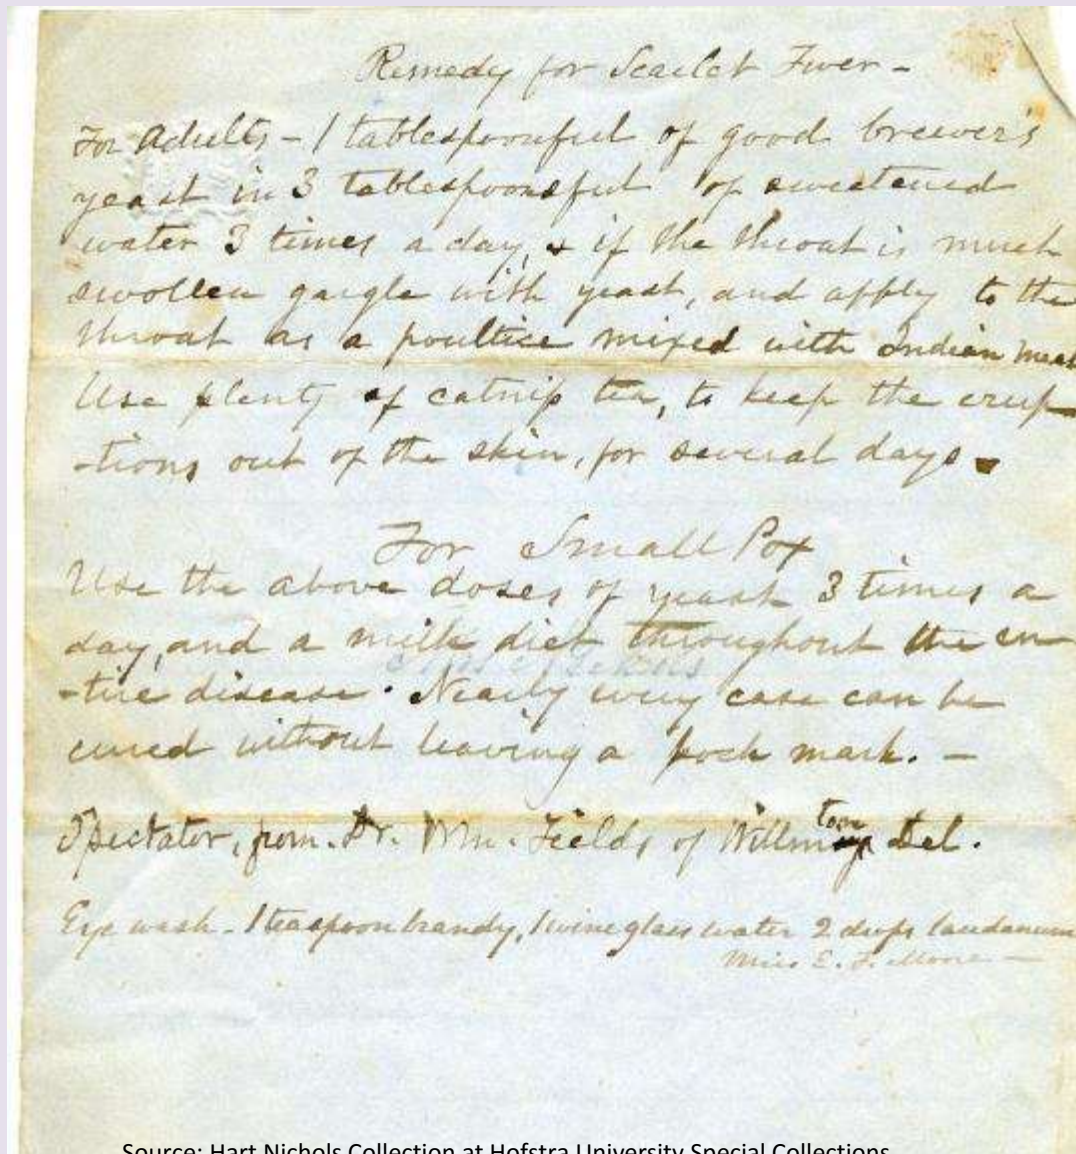 Remedy for Scarlet Fever -
For Adults - 1 tablespoonful of good brewer's
yeast in 3 tablespoonsful of sweetened
water 3 times a day, & if the throat is much
swollen gargle with yeast, and apply to the
throat as a poultice mixed with Indian meal
Use plenty of catnip tea, to keep the erup
-tions out of the skin, for several days.
For Small Pox
Use the above doses of yeast 3 times a
day, and a milk diet throughout the en
-tire disease. Nearly every case can be
cured without leaving a pock mark. -
Spectator, from. Dr. Wm. Fields of Wilmington Del.
Eye wash - 1 teaspoon brandy, 1 wine glass water 2 drops laudanum
Miss E. F. Moore -
Source: Hart Nichols Collection at Hofstra University Special Collections